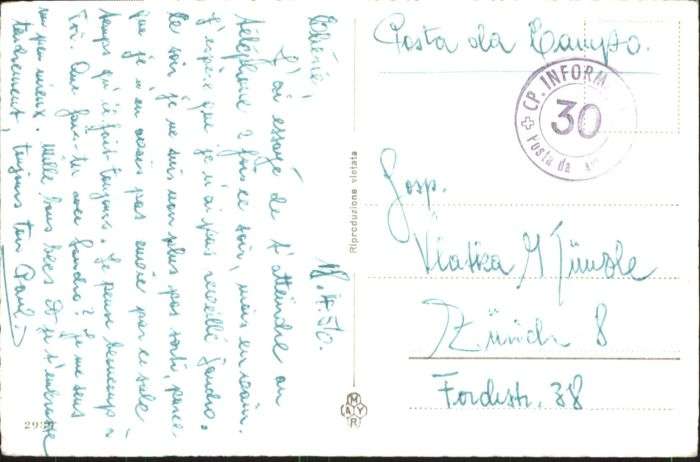 Chérie, 18.4.56.
J'ai essayé de t'atteindre au
téléphone 2 fois ce soir, mais en vain.
J'espère que je n'ai pas réveillé Sandro.
Ce soir je ne suis non plus pas sorti, parce-
que je n'en avais pas envie par ce sale
temps qu'il fait toujours. Je pense beaucoup à
Toi. Que fais-tu avec Sandro? Je me sens
un peu mieux. Mille bons becs et je t'embrasse
tendrement, toujours ton Paul.
2930
Riproduzione vietata
MAYR
Posta da Campo.
CP. INFORM
30
Posta da
Gosp.
Vlatka M
Zürich 8
38